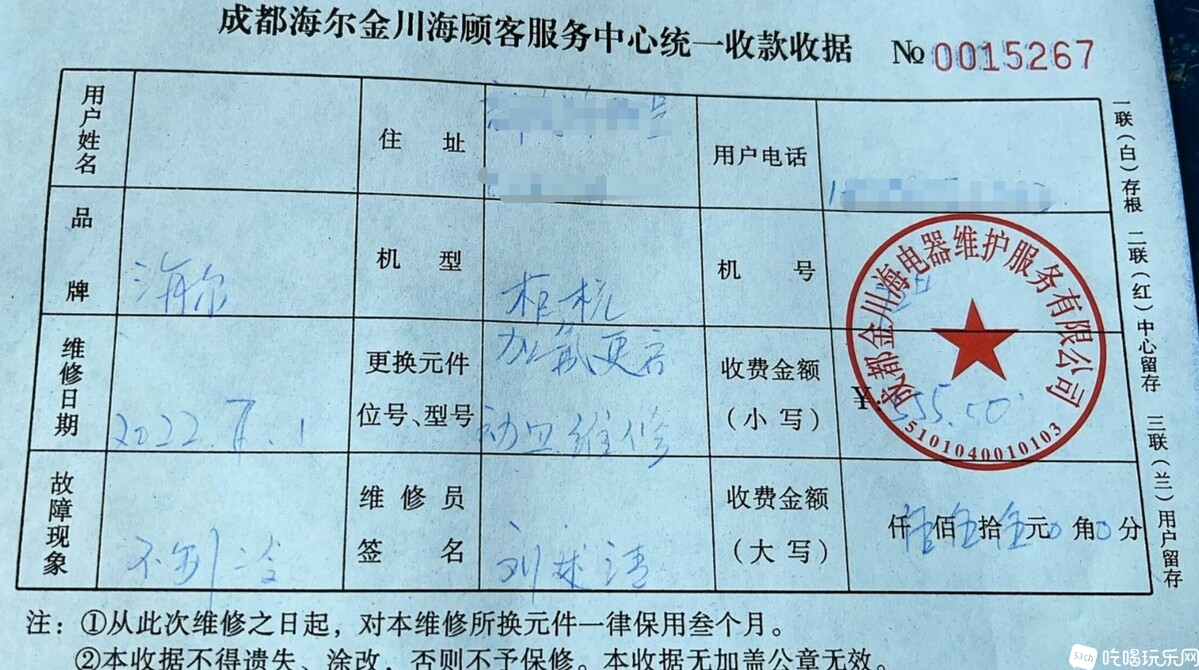 成都海尔金川海顾客服务中心统一收款收据 № 0015267
用户姓名 住址 号 用户电话
品牌 海尔 机型 柜机 机号
维修日期 2022.8.1 更换元件位号、型号 加氟更启动且维修 收费金额(小写) ¥:555.00
故障现象 不制冷 维修员签名 收费金额(大写) 仟伍佰伍拾伍元0角0分
成都金川海电器维护服务有限公司
5101040010103
一联(白)存根 二联(红)中心留存 三联(兰)用户留存
注:①从此次维修之日起,对本维修所换元件一律保用叁个月。
②本收据不得遗失、涂改,否则不予保修。本收据无加盖公章无效。
吃喝玩乐网